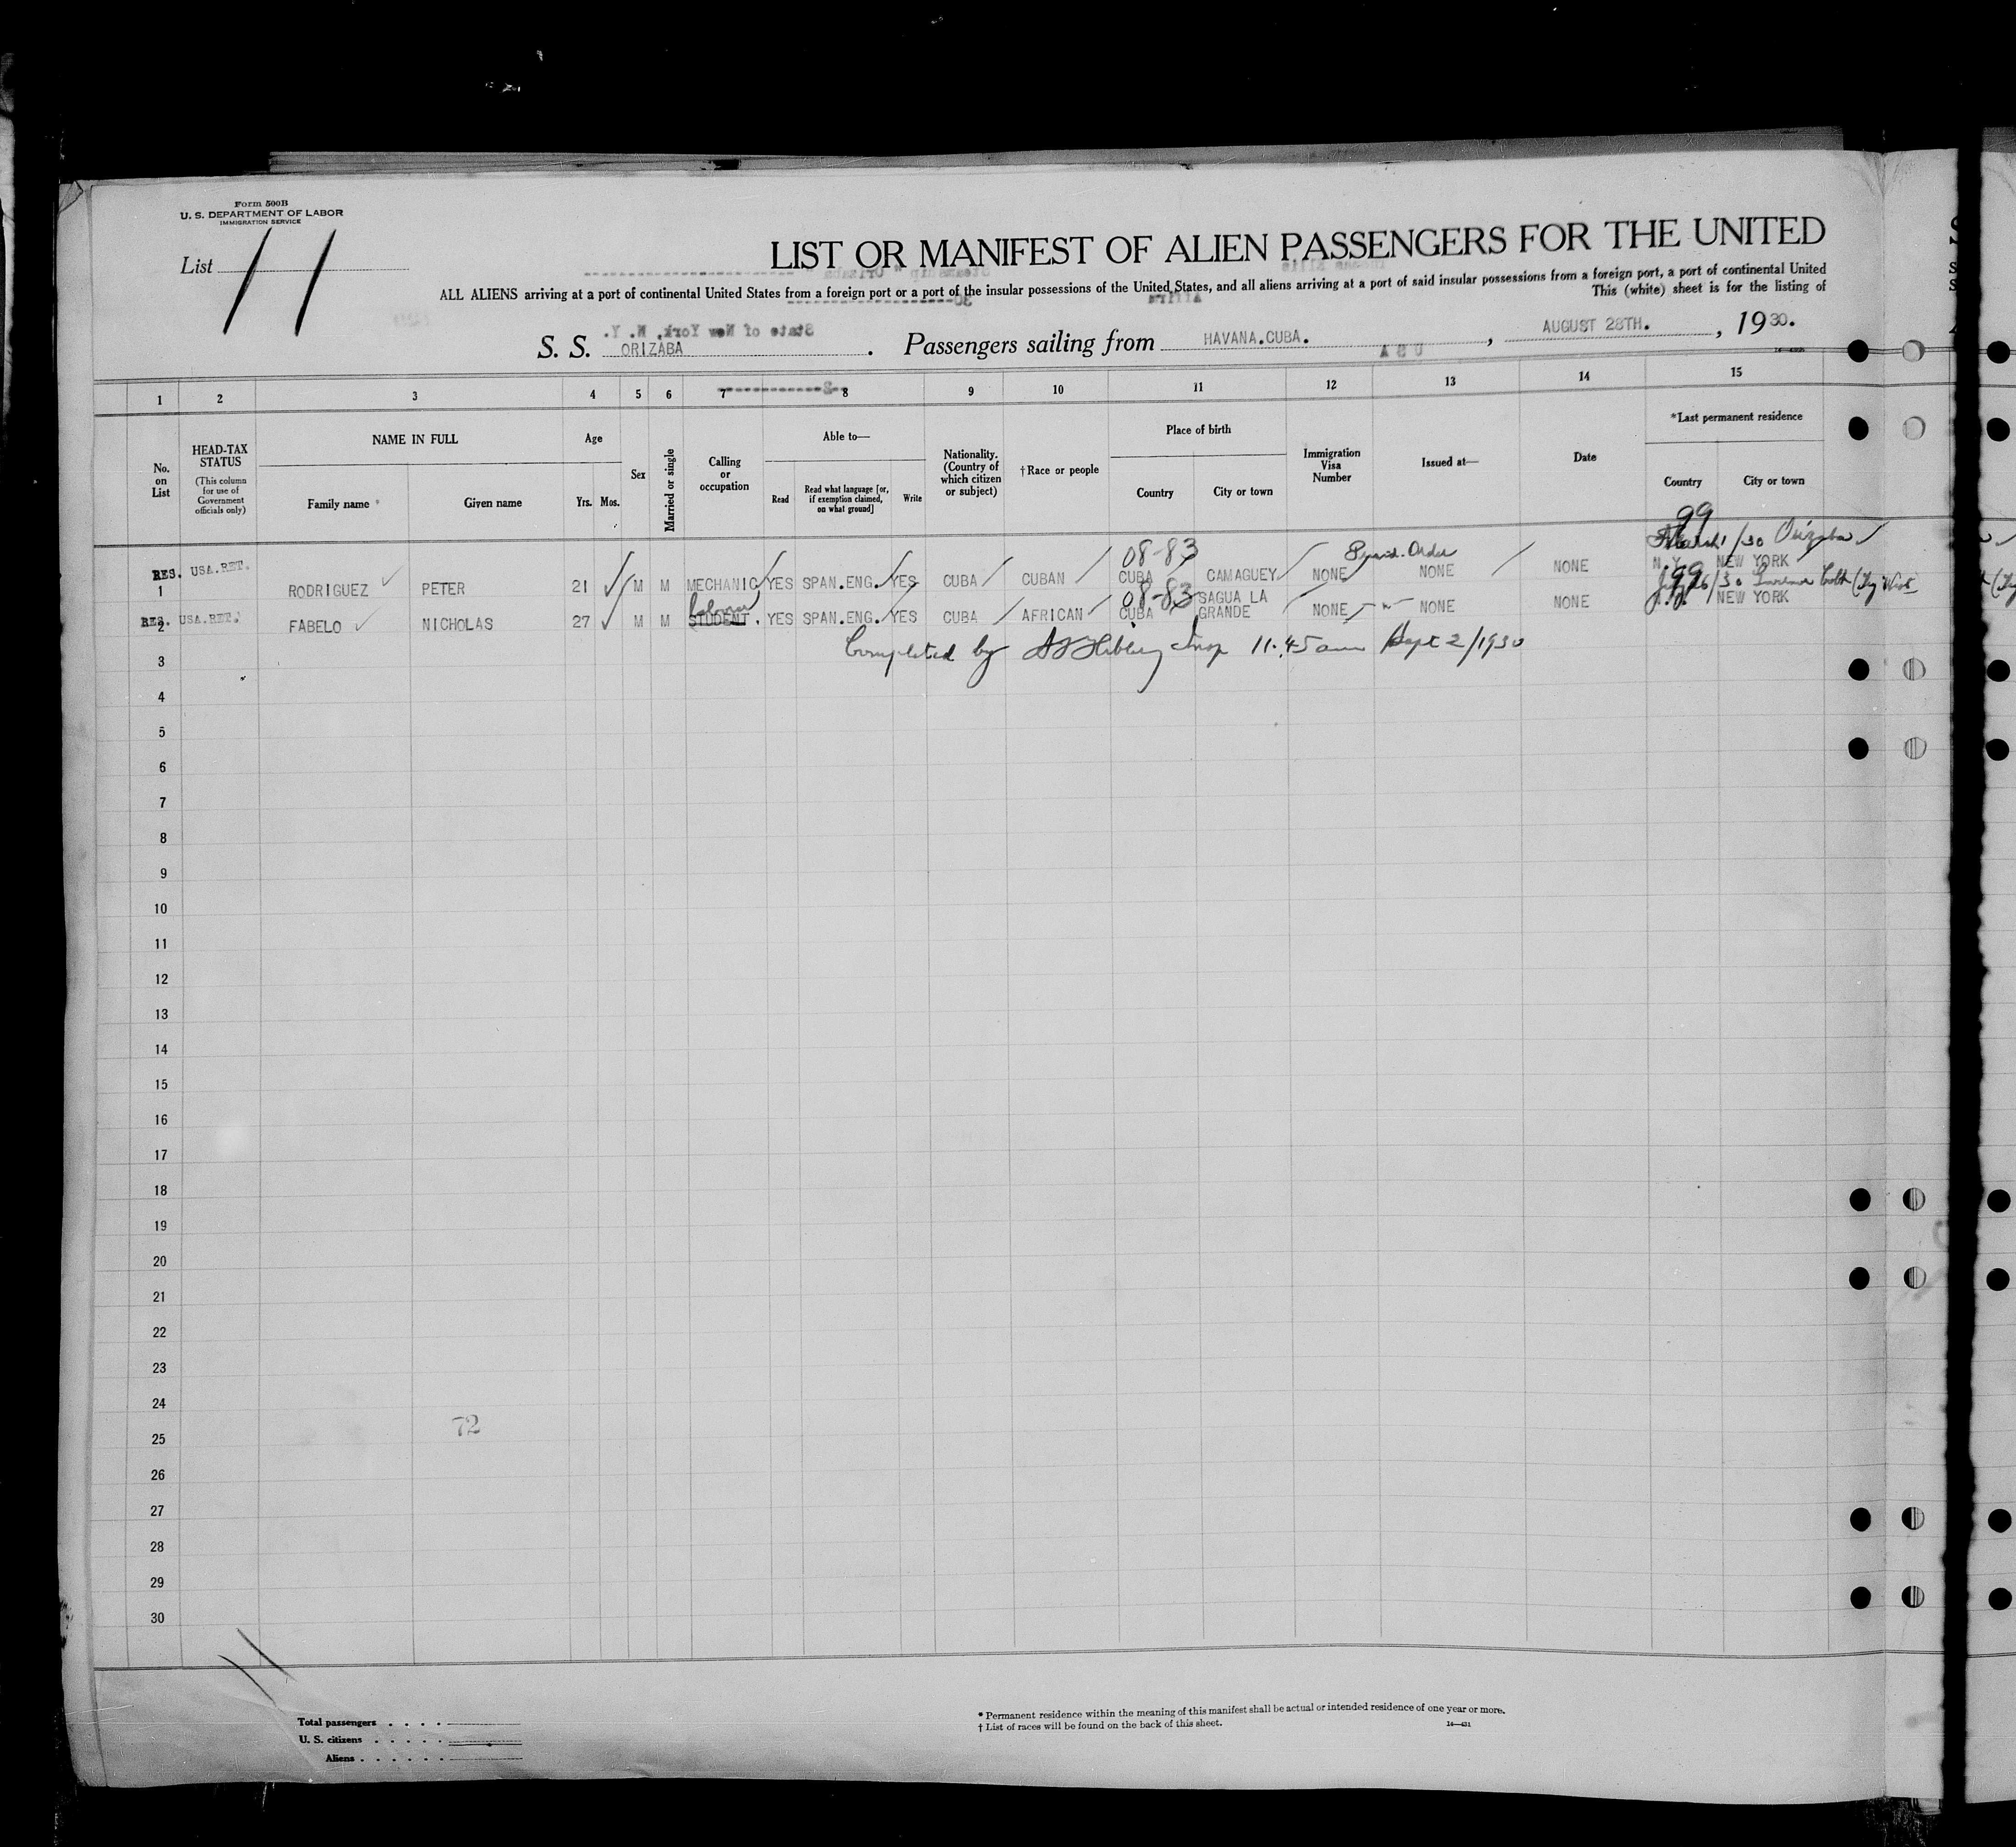 Form 500B
U. S. DEPARTMENT OF LABOR
IMMIGRATION SERVICE
List 11
LIST OR MANIFEST OF ALIEN PASSENGERS FOR THE UNITED
ALL ALIENS arriving at a port of continental United States from a foreign port or a port of the insular possessions of the United States, and all aliens arriving at a port of said insular possessions from a foreign port, a port of continental United
This (white) sheet is for the listing of
State of New York, N. Y.
S. S. ORIZABA . Passengers sailing from HAVANA.CUBA. , AUGUST 28TH. , 1930.
1 2 3 4 5 6 7 8 9 10 11 12 13 14 15
No. on List
HEAD-TAX STATUS
(This column for use of Government officials only)
NAME IN FULL
Family name Given name
Age
Yrs. Mos.
Sex
Married or single
Calling or occupation
Able to—
Read
Read what language [or, if exemption claimed, on what ground]
Write
Nationality. (Country of which citizen or subject)
†Race or people
Place of birth
Country City or town
Immigration Visa Number
Issued at—
Date
*Last permanent residence
Country City or town
99
08-83 /30 Orizaba
RES. USA.RET.
1 RODRIGUEZ PETER 21 M M MECHANIC YES SPAN.ENG. YES CUBA CUBAN CUBA CAMAGUEY NONE NONE NONE N.Y. NEW YORK
08-83 99 /30
RES. USA.RET.
2 FABELO NICHOLAS 27 M M STUDENT. YES SPAN.ENG. YES CUBA AFRICAN CUBA SAGUA LA GRANDE NONE NONE NONE NEW YORK
Completed by Insp 11.45 am Sept 2/1930
3
4
5
6
7
8
9
10
11
12
13
14
15
16
17
18
19
20
21
22
23
24
72
25
26
27
28
29
30
11
Total passengers
U. S. citizens
Aliens
* Permanent residence within the meaning of this manifest shall be actual or intended residence of one year or more.
† List of races will be found on the back of this sheet.
14—431